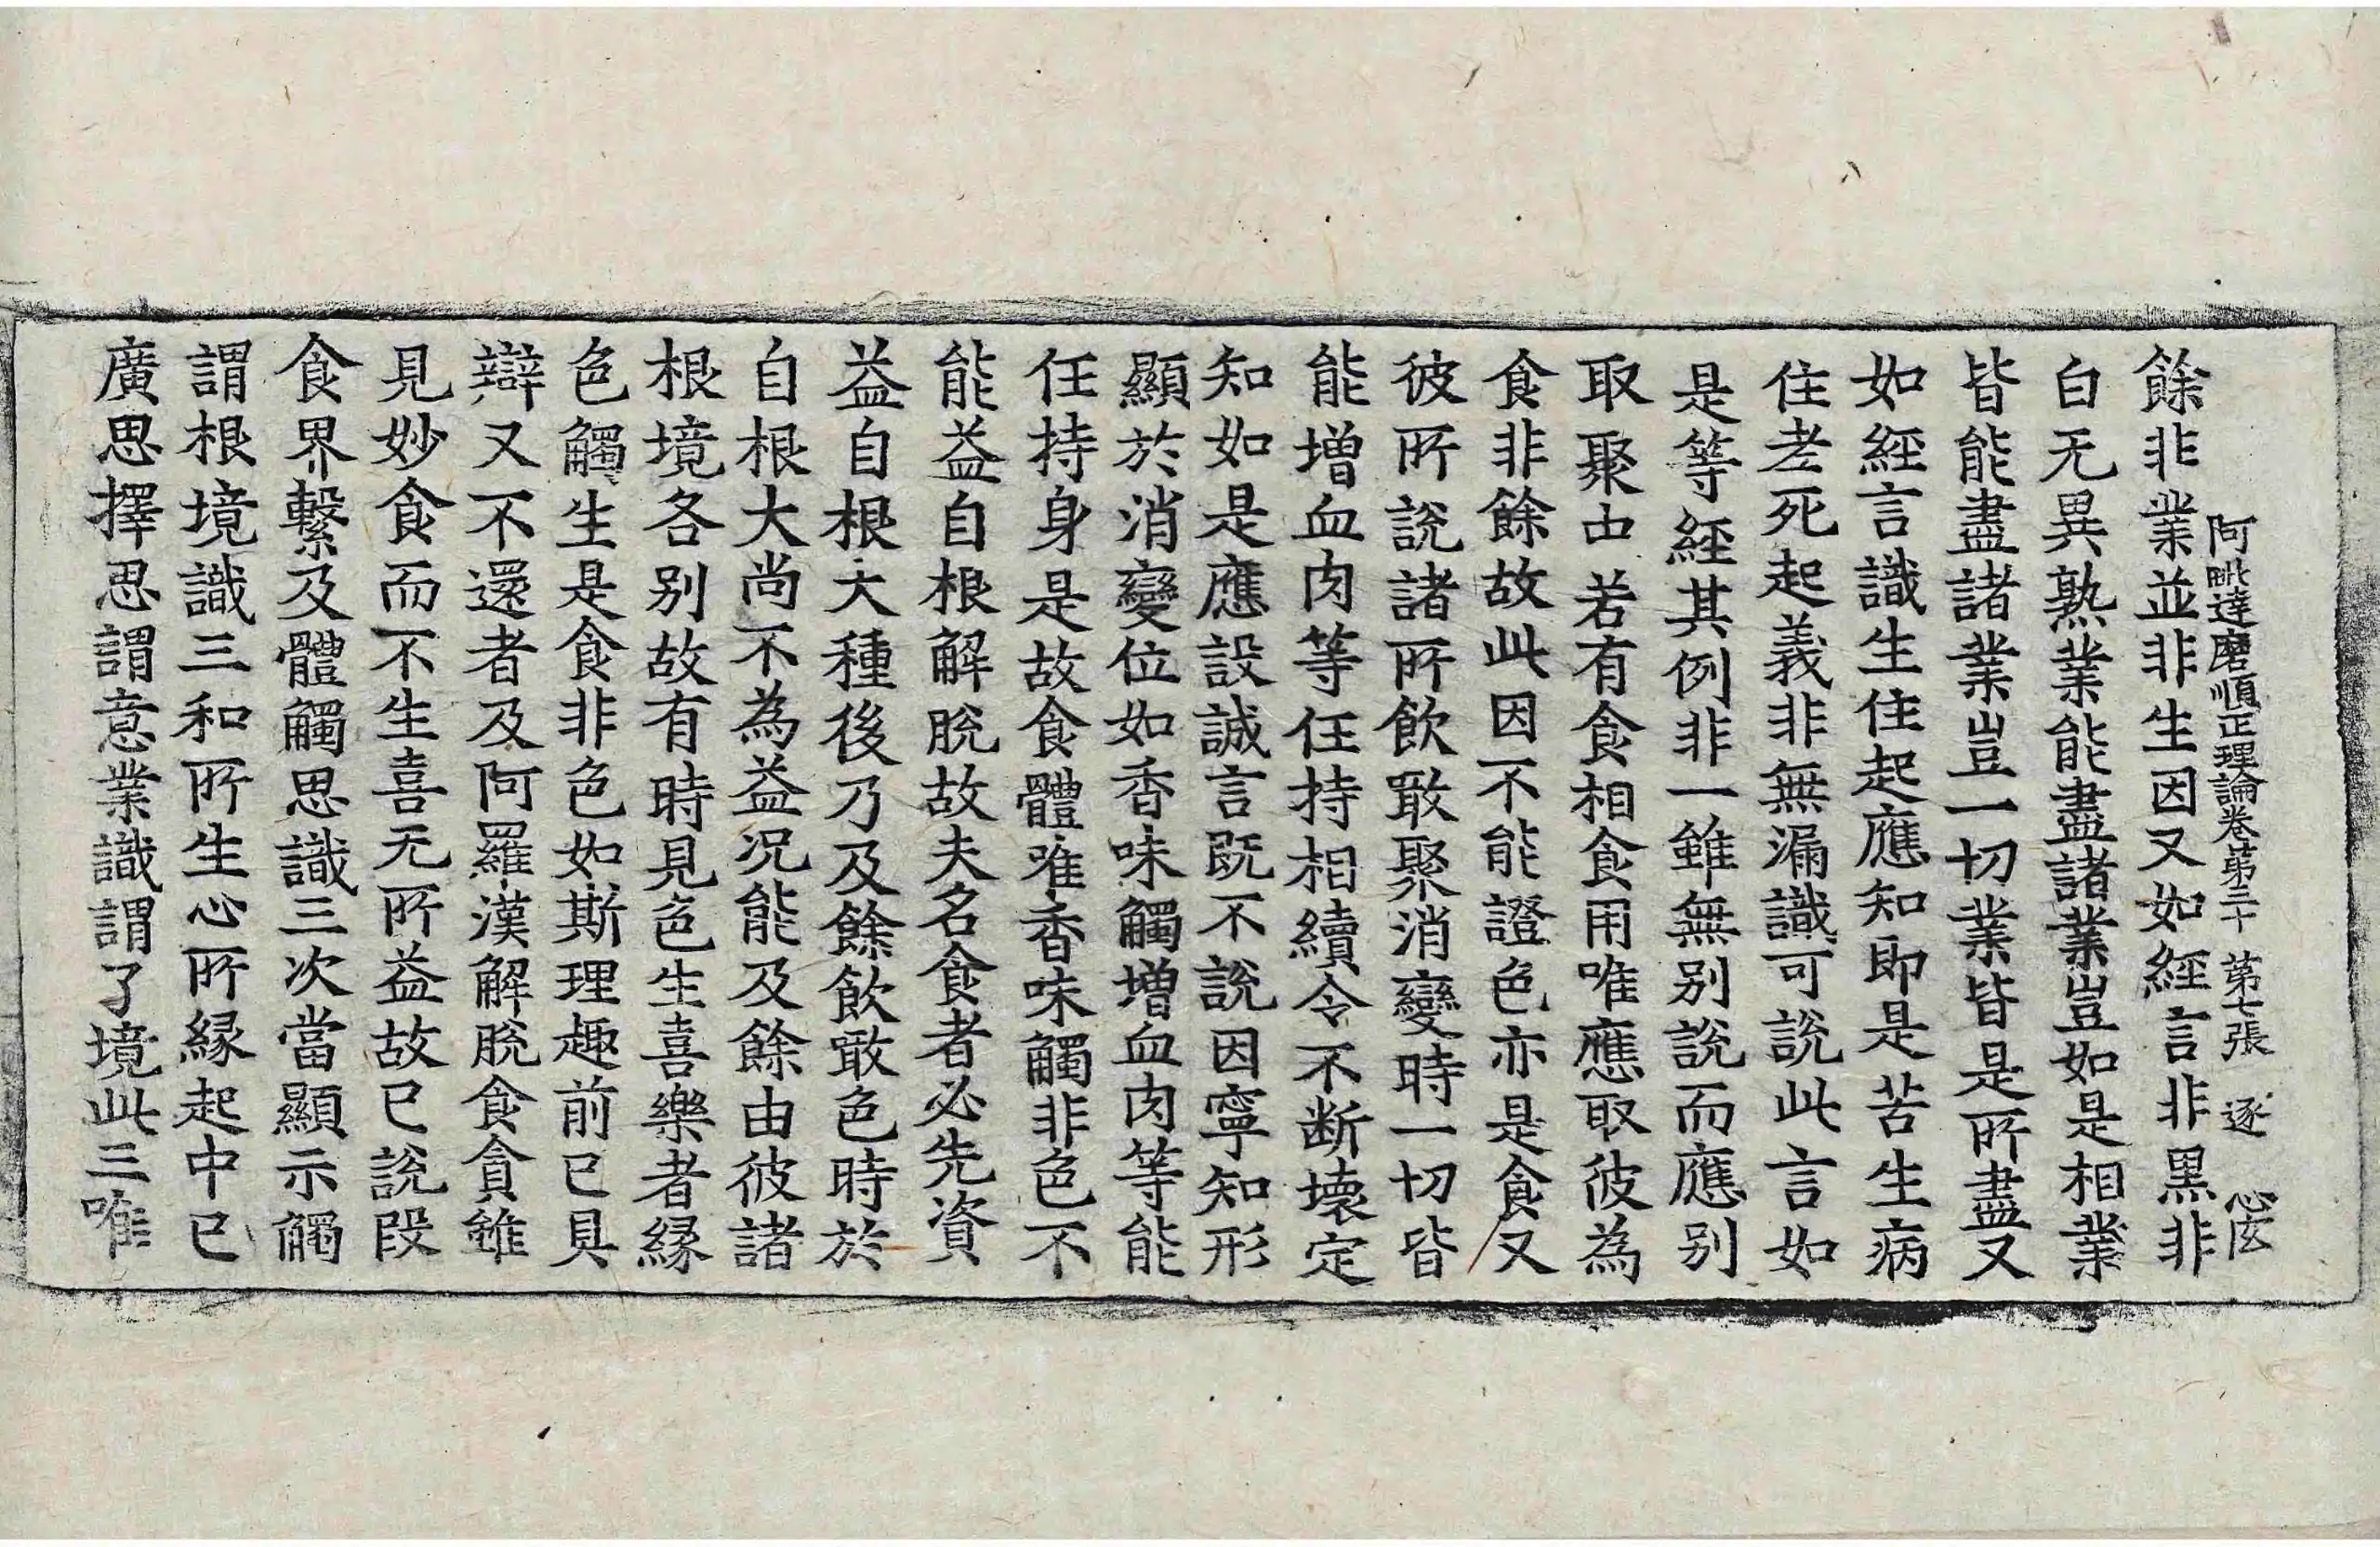 阿毗達磨順正理論卷第三十 第七張 逐
餘非業並非生因又如經言非黑非
白无異熟業能盡諸業豈如是相業
皆能盡諸業豈一切業皆是所盡又
如經言識生住起應知即是苦生病
住老死起義非無漏識可說此言如
是等經其例非一雖無別說而應別
取聚中若有食相食用唯應取彼為
食非餘故此因不能證色亦是食又
彼所說諸所飲噉聚消變時一切皆
能增血肉等任持相續令不断壞定
知如是應設誠言既不說因寧知形
顯於消變位如香味觸增血肉等能
任持身是故食體唯香味觸非色不
能益自根解脫故夫名食者必先資
益自根大種後乃及餘飲噉色時於
自根大尚不為益况能及餘由彼諸
根境各別故有時見色生喜樂者緣
色觸生是食非色如斯理趣前已具
辯又不還者及阿羅漢解脫食貪雖
見妙食而不生喜无所益故已說段
食界繫及體觸思識三次當顯示觸
謂根境識三和所生心所緣起中已
廣思擇思謂意業識謂了境此三唯